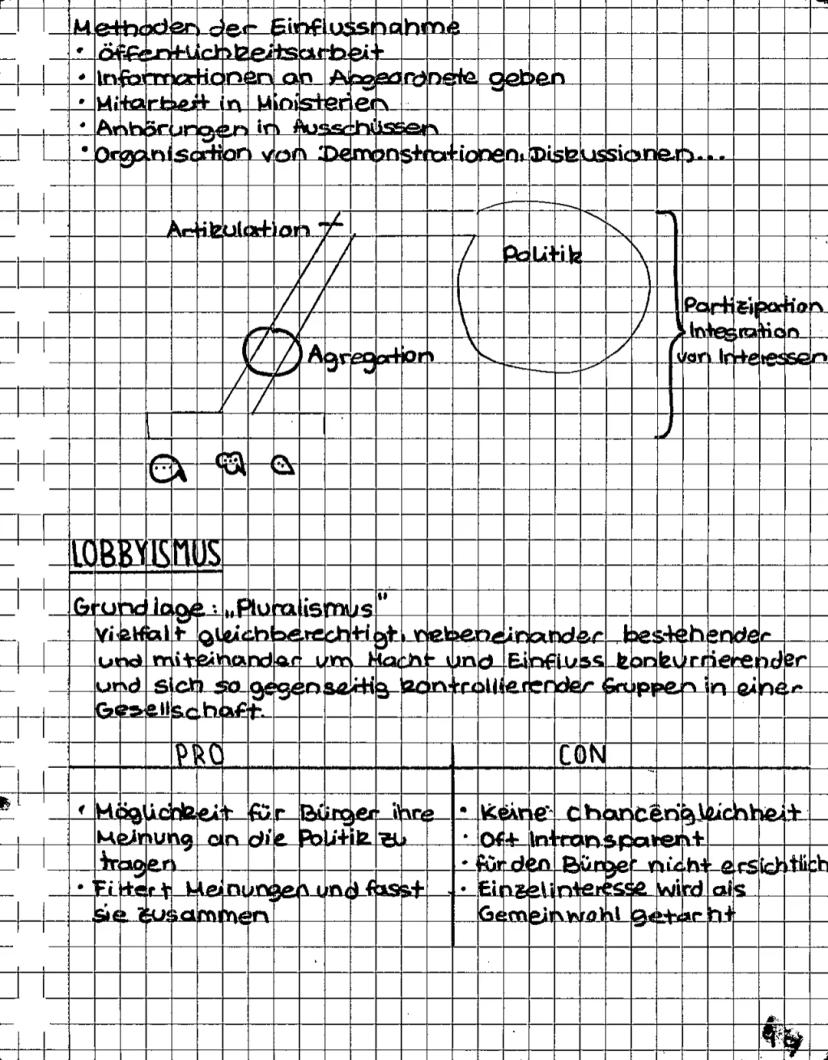 Methoden der Einflussnahme
• öffentlichkeitsarbeit
• Informationen an Abgeordnete geben
• Mitarbeit in Ministerien
• Anhörungen in Ausschüssen
• Organisation von Demonstrationen, Diskussionen...
Artikulation
Politik
Partizipation
Integration
von Interessen
Agregation
LOBBYISMUS
Grundlage: „Pluralismus"
Vielfalt gleichberechtigt, nebeneinander bestehender
und miteinander um Macht und Einfluss konkurrierender
und sich so gegenseitig kontrollierender Gruppen in einer
Gesellschaft.
PRO
CON
• Möglichkeit für Bürger ihre
Meinung an die Politik zu
tragen
• Filtert Meinungen und fasst
sie zusammen
• Keine Chancengleichheit
• Oft Intransparent
• für den Bürger nicht ersichtlich
• Einzelinteresse wird als
Gemeinwohl getarnt